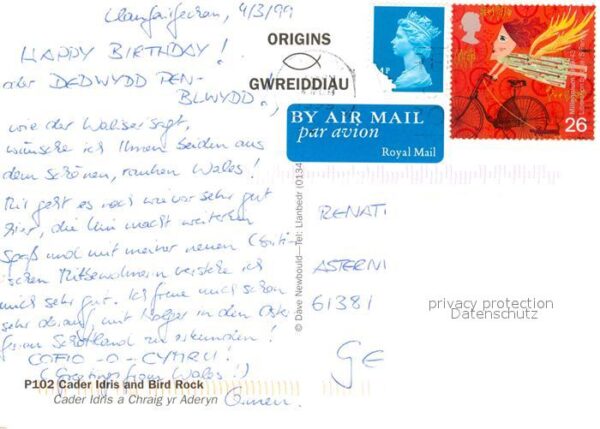 Llanfairfechan, 4/3/99
HAPPY BIRTHDAY!
oder PENDWYDD PEN-
BLWYDD!,
wie der Waliser sagt,
wünsche ich Ihnen beiden aus
dem schönen, rauhen Wales!
Mir geht es nach wie vor sehr gut
hier, die Uni macht weiterhin
Spaß und mit meiner neuen
schen Mitbewohnerin verstehe ich
mich sehr gut. Ich freue mich schon
sehr darauf, mit Holger in den Oster
ferien Schottland zu erkunden!
COFIO-O-CYMRU!
(Greetings from Wales!)
P102 Cader Idris and Bird Rock
Cader Idris a Chraig yr Aderyn
ORIGINS
GWREIDDIAU
© Dave Newbould – Tel: Llanbedr (0134
BY AIR MAIL
par avion
Royal Mail
26
RENATI
ASTERNI
61381
GE
privacy protection
Datenschutz